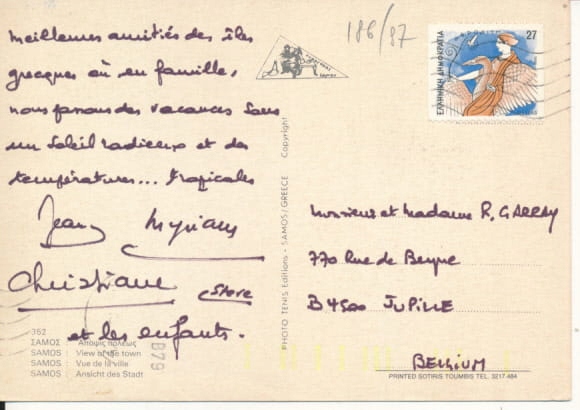 Meilleures amitiés des îles
grecques où en famille,
nous passons des vacances sous
un soleil radieux et des
températures... tropicales
Jean Myriam
Christiane Steve
et les enfants.
352
ΣΑΜΟΣ : Άποψις πόλεως
SAMOS : View of the town
SAMOS : Vue de la ville
SAMOS : Ansicht des Stadt
B79
PHOTO TENIS Editions - SAMOS/GREECE Copyright
186/87
27
ΕΛΛΗΝΙΚΗ ΔΗΜΟΚΡΑΤΙΑ
Monsieur et Madame R. GARRAY
770 Rue de Beyne
B4500 JUPILLE
BELGIUM
PRINTED SOTIRIS TOUMBIS TEL. 3217-484